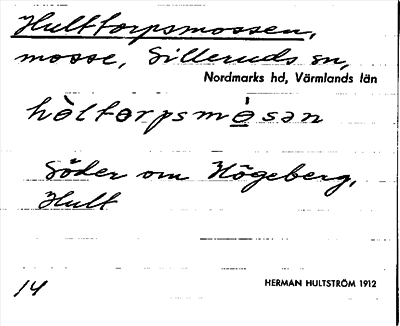 Hulttorpsmossen,
mosse, Silleruds sn,
Nordmarks hd, Värmlands län
hὸltɵrpsmɵ́sən
Söder om Högeberg,
Hult
14
HERMAN HULTSTRÖM 1912